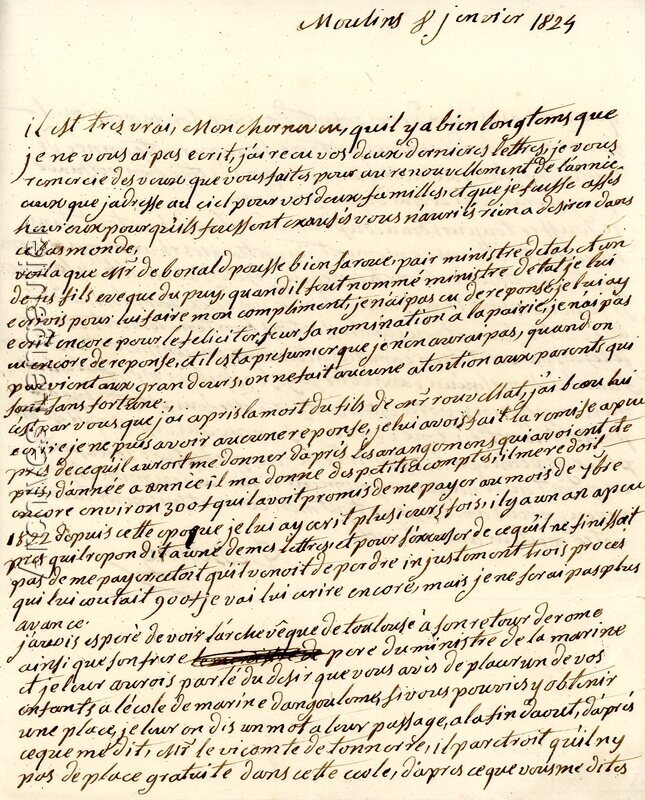 Moulins 8 jenvier 1824
il est tres vrai, Mon cher neveu, quil y a bien longtems que
je ne vous ai pas ecrit, j'ai recu vos deux dernieres lettres, je vous
remercie des veux que vous faites pour au renouvellement de l'année
ceux que j'adresse au ciel pour vos deux familles, et que je fusse asses
heureux pour qu'ils fussent exausés vous n'auriés rien a desirer dans
ce bas monde,
voila que Mr de bonald pousse bien sa roue, pair ministre detat, et un
de ses fils eveque du puy, quand il fut nommé ministre detat je lui
ecrivis pour lui faire mon compliment, je n'ai pas eu de reponse, je lui ay
ecrit encore pour le feliciter sur sa nomination à la pairie, je n'ai pas
eu encore de reponse, et il est a presumer que je n'en aurai pas, quand on
parvient aux grandeurs, on ne fait aucune atention aux parents qui
sont sans fortune,
c'est par vous que j'ai apris la mort du fils de mr rouvellat, j'ai beau lui
ecrire je ne puis avoir aucune reponse, je lui avois fait la remise a peu
près de ce quil auroit me donner d'après les arangemens qui avoient été
pris, d'année a année il ma donné des petits acompts, il me redoit
encore environ 300 # quil avoit promis de me payer au mois de 7bre
1822 depuis cette epoque je lui ay ecrit plusieurs fois, il y a un an a peu
près quil repondit a une de mes lettres, et pour s'excuser de ce quil ne finissoit
pas de me payer cetoit quil venoit de perdre injustement trois procès
qui lui coutait 900 # je vai lui ecrire encore, mais je ne serai pas plus
avancé.
j'avois esperé de voir l'archevêque de toulouse à son retour de rome
ainsi que son frere pere du ministre de la marine
et je leur aurois parlé du desir que vous avés de placer un de vos
enfants, a l'école de marine dangouleme, si vous pouviés y obtenir
une place, je leur en dis un mot a leur passage, a la fin daout, d'après
ce que me dit, Mr le vicomte de tonnerre, il paroitroit quil ny
pas de place gratuite dans cette ecole, d'apres ce que vous me dites